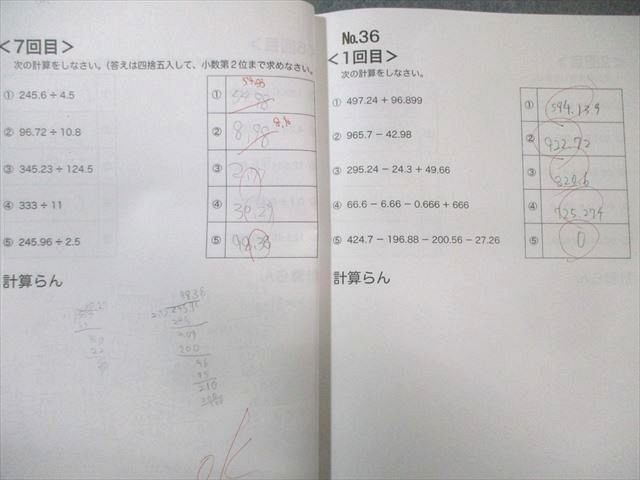 <7回目>
次の計算をしなさい。(答えは四捨五入して、小数第2位まで求めなさい。
① 245.6 ÷ 4.5
② 96.72 ÷ 10.8
③ 345.23 ÷ 124.5
④ 333 ÷ 11
⑤ 245.96 ÷ 2.5
①
54.98
②
8.98
③
④
⑤
98.38
計算らん
ok
№36
<1回目>
次の計算をしなさい。
① 497.24 + 96.899
② 965.7 − 42.98
③ 295.24 − 24.3 + 49.66
④ 66.6 − 6.66 − 0.666 + 666
⑤ 424.7 − 196.88 − 200.56 − 27.26
① 594.139
② 922.72
③ 320.6
④ 725.274
⑤ 0
計算らん